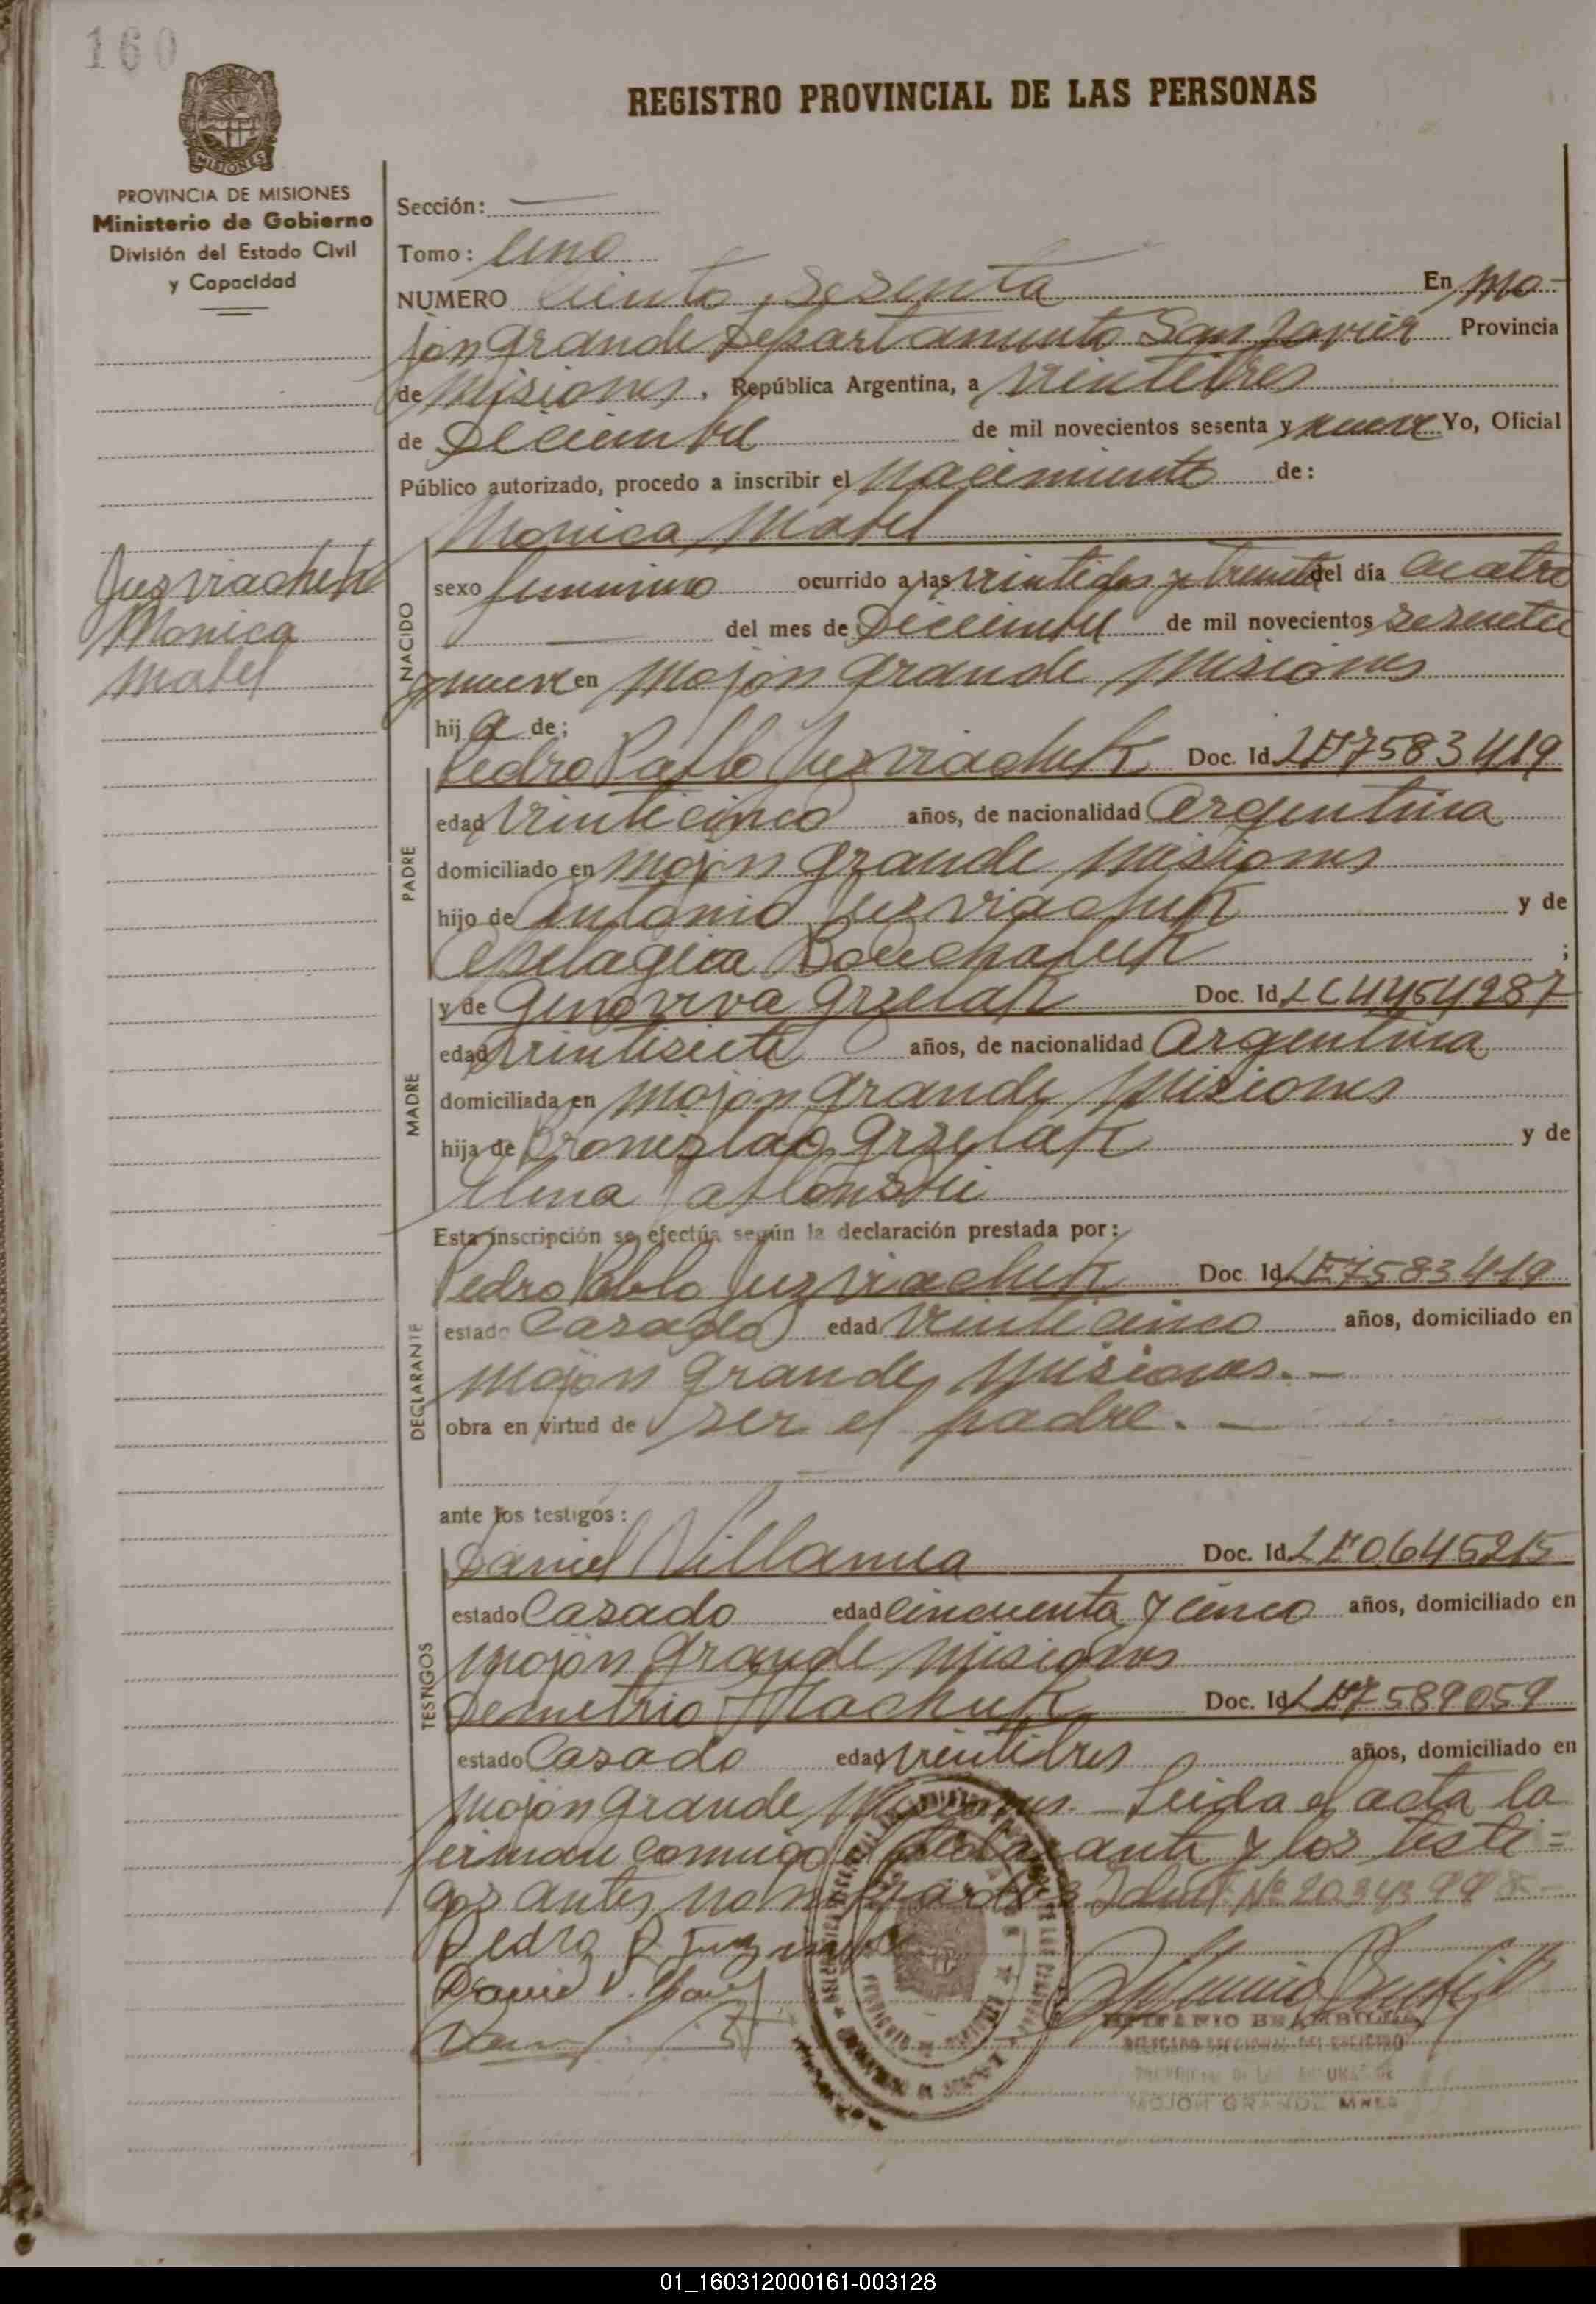 160
REGISTRO PROVINCIAL DE LAS PERSONAS
MISIONES
PROVINCIA DE MISIONES
Ministerio de Gobierno
División del Estado Civil
y Capacidad
Sección:
Tomo: uno
NUMERO Ciento Sesenta En Mo-
jon grande Departamento San Javier Provincia
de Misiones, República Argentina, a veintitres
de Diciembre de mil novecientos sesenta y nueve Yo, Oficial
Público autorizado, procedo a inscribir el nacimiento de:
Monica Mabel
Juzviachuk
Monica
Mabel
NACIDO
sexo femenino ocurrido a las veintidos y treinta del día cuatro
del mes de Diciembre de mil novecientos sesenta
y nueve en Mojon grande Misiones
hija de;
PADRE
Pedro Pablo Juzviachuk Doc. Id. LE7583419
edad veinticinco años, de nacionalidad Argentina
domiciliado en Mojon grande Misiones
hijo de Antonio Juzviachuk y de
Pelagia ;
MADRE
y de Genoveva Grzelak Doc. Id. LC4454287
edad veintisiete años, de nacionalidad Argentina
domiciliada en Mojon grande Misiones
hija de Bronislao Grzelak y de
Elena
Esta inscripción se efectúa según la declaración prestada por:
DECLARANTE
Pedro Pablo Juzviachuk Doc. Id. LE7583419
estado Casado edad veinticinco años, domiciliado en
Mojon grande Misiones.-
obra en virtud de ser el padre.-
ante los testigos:
TESTIGOS
Daniel Villanueva Doc. Id. LE0645215
estado Casado edad cincuenta y cinco años, domiciliado en
Mojon grande Misiones
Demetrio Machuk Doc. Id. LE7589059
estado Casado edad veintitres años, domiciliado en
Mojon grande Misiones.- Leida el acta la
firman conmigo el declarante y los testi=
gos antes nombrados
Pedro P. Juzviachuk
EPIFANIO BRAMBILLA
DELEGADO SECCIONAL DEL REGISTRO
PROVINCIAL DE LAS PERSONAS DE
MOJON GRANDE MNES
01_160312000161-003128